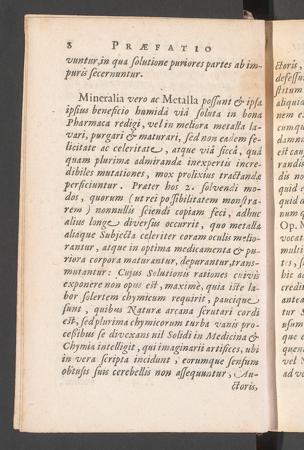 8 PRÆFATIO
vuntur, in qua solutione puriores partes ab im-
puris secernuntur.
Mineralia vero ac Metalla possunt & ipsa
ipsius beneficio humidâ viâ soluta in bona
Pharmaca redigi, vel in meliora metalla la-
vari, purgari & maturari, sed non eadem fe-
licitate ac celeritate, atque viâ siccâ, quâ
quam plurima admiranda inexpertis incre-
dibiles mutationes, mox prolixius tractandæ
perficiuntur. Præter hos 2. solvendi mo-
dos, quorum (ut rei possibilitatem monstra-
rem) nonnullis sciendi copiam feci, adhuc
alius longe diversus occurrit, quo metalla
aliaque Subjecta celeriter coram oculis melio-
rantur, atque in optima medicamenta & pu-
riora corpora maturantur, depurantur, trans-
mutantur: Cujus Solutionis rationes cuivis
exponere non opus est, maximè, quia iste la-
bor solertem chymicum requirit, paucique
sunt, quibus Naturæ arcana scrutari cordi
est, sed plurima chymicorum turba vanis pro-
cessibus se divexans nil Solidi in Medicina &
Chymia intelligit, qui imaginarii artifices, ubi
in vera scripta incidunt, eorumque sensum
obtusis suis cerebellis non assequuntur, Au-
ctoris,